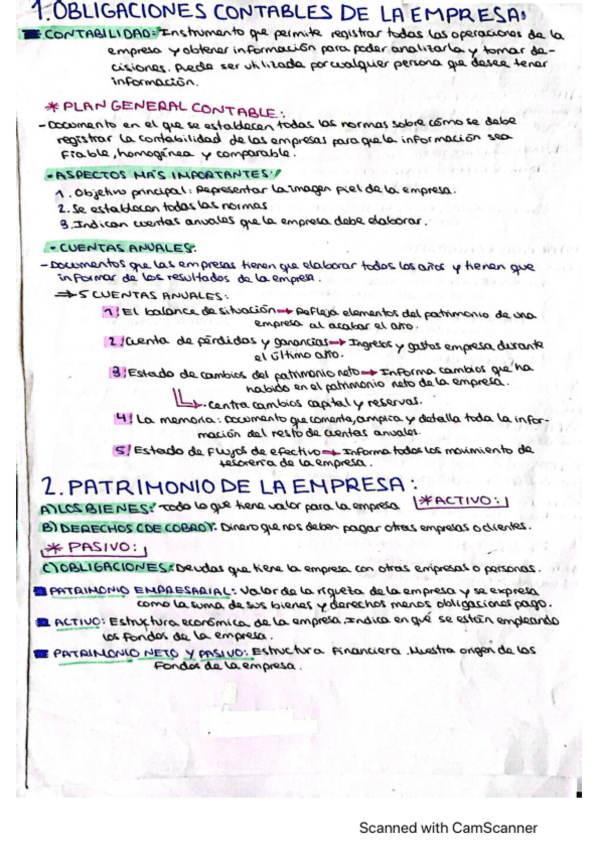 1. OBLIGACIONES CONTABLES DE LA EMPRESA:
CONTABILIDAD: Instrumento que permite registrar todas las operaciones de la
empresa y obtener información para poder analizarla y tomar de-
cisiones. Puede ser utilizada por cualquier persona que desee tener
información.
* PLAN GENERAL CONTABLE:
- Documento en el que se establecen todas las normas sobre cómo se debe
registrar la contabilidad de las empresas para que la información sea
fiable, homogénea y comparable.
- ASPECTOS MÁS IMPORTANTES:
1. Objetivo principal: Representar la imagen fiel de la empresa.
2. Se establecen todas las normas
3. Indican cuentas anuales que la empresa debe elaborar.
- CUENTAS ANUALES:
- Documentos que las empresas tienen que elaborar todos los años y tienen que
informar de los resultados de la empresa.
⇒ 5 CUENTAS ANUALES:
1. El balance de situación → Refleja elementos del patrimonio de una
empresa al acabar el año.
2. Cuenta de pérdidas y ganancias → Ingresos y gastos empresa durante
el último año.
3. Estado de cambios del patrimonio neto → Informa cambios que ha
habido en el patrimonio neto de la empresa.
↳ Centra cambios capital y reservas.
4. La memoria: Documento que comenta, amplia y detalla toda la infor-
mación del resto de cuentas anuales.
5. Estado de Flujos de efectivo → Informa todos los movimiento de
tesorería de la empresa.
2. PATRIMONIO DE LA EMPRESA:
A) LOS BIENES: Todo lo que tiene valor para la empresa * ACTIVO:
B) DERECHOS (DE COBRO): Dinero que nos deben pagar otras empresas o clientes.
* PASIVO:
C) OBLIGACIONES: Deudas que tiene la empresa con otras empresas o personas.
PATRIMONIO EMPRESARIAL: Valor de la riqueza de la empresa y se expresa
como la suma de sus bienes y derechos menos obligaciones pago.
ACTIVO: Estructura económica de la empresa. Indica en qué se están empleando
los fondos de la empresa.
PATRIMONIO NETO Y PASIVO: Estructura financiera. Muestra origen de los
fondos de la empresa.
Scanned with CamScanner